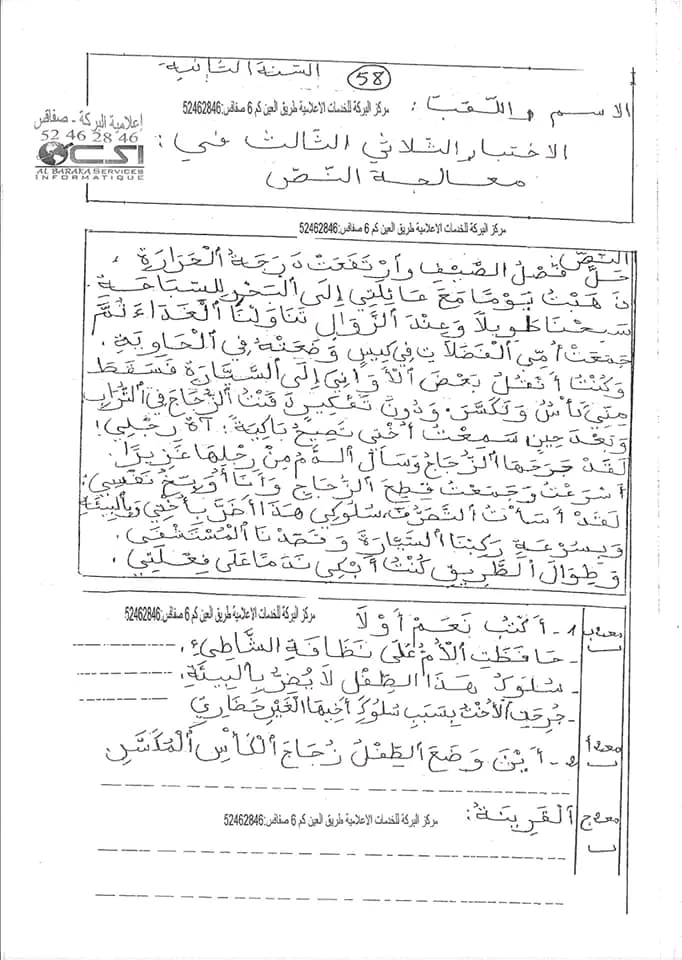 السنة الثانية-
58
الاسم واللقب:
مركز البركة للخدمات الاعلامية طريق العين كم 6 صفاقس:52462846
إعلامية البركة - صفاقس
52 46 28 46
CSI
AL BARAKA SERVICES
INFORMATIQUE
الاختبار الثلاثي الثالث في:
معالجة النصّ
مركز البركة للخدمات الاعلامية طريق العين كم 6 صفاقس:52462846
النصّ:
حَلَّ فَصْلُ الصَّيْفِ وَارْتَفَعَتْ دَرَجَةُ الْحَرَارَةِ.
ذَهَبْتُ يَوْمًا مَعَ عَائِلَتِي إِلَى الْبَحْرِ لِلسِّبَاحَةِ
سَبَحْنَا طَوِيلاً وَعِنْدَ الزَّوَالِ تَنَاوَلْنَا الْغَدَاءَ ثُمَّ
جَمَعَتْ أُمِّي الْفَضَلَاتِ فِي كِيسٍ وَضَعَتْهُ فِي الْحَاوِيَةِ.
وَكُنْتُ أَنْقُلُ بَعْضَ الْأَوَانِي إِلَى السَّيَّارَةِ فَسَقَطَ
مِنِّي كَأْسٌ وَتَكَسَّرَ وَدُونَ تَفْكِيرٍ دَفَنْتُ الزُّجَاجَ فِي التُّرَابِ
وَبَعْدَ حِينٍ سَمِعْتُ أُخْتِي تَصِيحُ بَاكِيَةً: آهْ رِجْلِي!
لَقَدْ جَرَحَهَا الزُّجَاجُ وَسَالَ الدَّمُ مِنْ رِجْلِهَا غَزِيرًا.
أَسْرَعْتُ وَجَمَعْتُ قِطَعَ الزُّجَاجِ وَأَنَا أُوَبِّخُ نَفْسِي:
لَقَدْ أَسَأْتُ التَّصَرُّفَ، سُلُوكِي هَذَا أَضَرَّ بِأُخْتِي وَبِالْبِيئَةِ
وَبِسُرْعَةٍ رَكِبْنَا السَّيَّارَةَ وَقَصَدْنَا الْمُسْتَشْفَى.
وَطِوَالَ الطَّرِيقِ كُنْتُ أَبْكِي نَدَمًا عَلَى فِعْلَتِي.
مركز البركة للخدمات الاعلامية طريق العين كم 6 صفاقس:52462846
1- أَكْتُبُ نَعَمْ أَوْ لَا
- حَافَظَتِ الْأُمُّ عَلَى نَظَافَةِ الشَّاطِئِ.
- سُلُوكُ هَذَا الطِّفْلِ لَا يُضِرُّ بِالْبِيئَةِ.
- جُرِحَتِ الْأُخْتُ بِسَبَبِ سُلُوكِ أَخِيهَا الْغَيْرِ حَضَارِي
2- أَيْنَ وَضَعَ الطِّفْلُ زُجَاجَ الْكَأْسِ الْمُكَسَّرِ
الْقَرِينَةُ:
مركز البركة للخدمات الاعلامية طريق العين كم 6 صفاقس:52462846